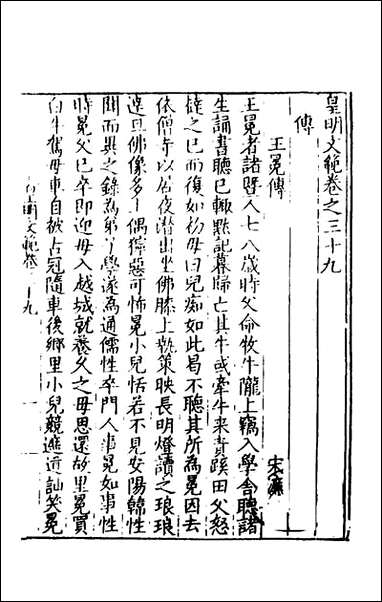 皇明文範卷之三十九
傳
王冕傳
宋濂
王冕者諸暨人七八歲時父命牧牛隴上竊入學舍聽諸
生誦書聽已輙黙記暮歸亡其牛或牽牛来責蹊田父怒
撻之已而復如初母曰兒痴如此曷不聽其所為冕因去
依僧寺以居夜潛出坐佛膝上執策映長明燈讀之琅琅
達旦佛像多土偶獰惡可怖冕小兒恬若不見安陽韓性
聞而異之錄為弟子學遂為通儒性卒門人事冕如事性
時冕父已卒即迎母入越城就養久之母思還故里冕買
白牛駕母車自被古冠隨車後鄉里小兒競遮道訕笑冕
皇明文範卷三十九
一